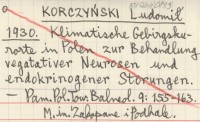 KORCZYŃSKI Ludomił
1930. Klimatische Gebirgsku-
rorte in Polen zur Behandlung
vegatativer Neurosen und
endokrinogener Störungen.
— Pam. Pol. Tow. Balneol. 9: 155-163.
M. in. Zakopane i Podhale.